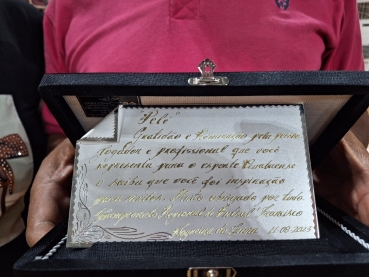 "Pelé"
Gratidão e Admiração pela pessoa
Jogador e profissional que você
representa para o esporte
e saiba que você foi inspiração
para muitos. Muito obrigado por tudo.
Campeonato Francisco
11.08.2013